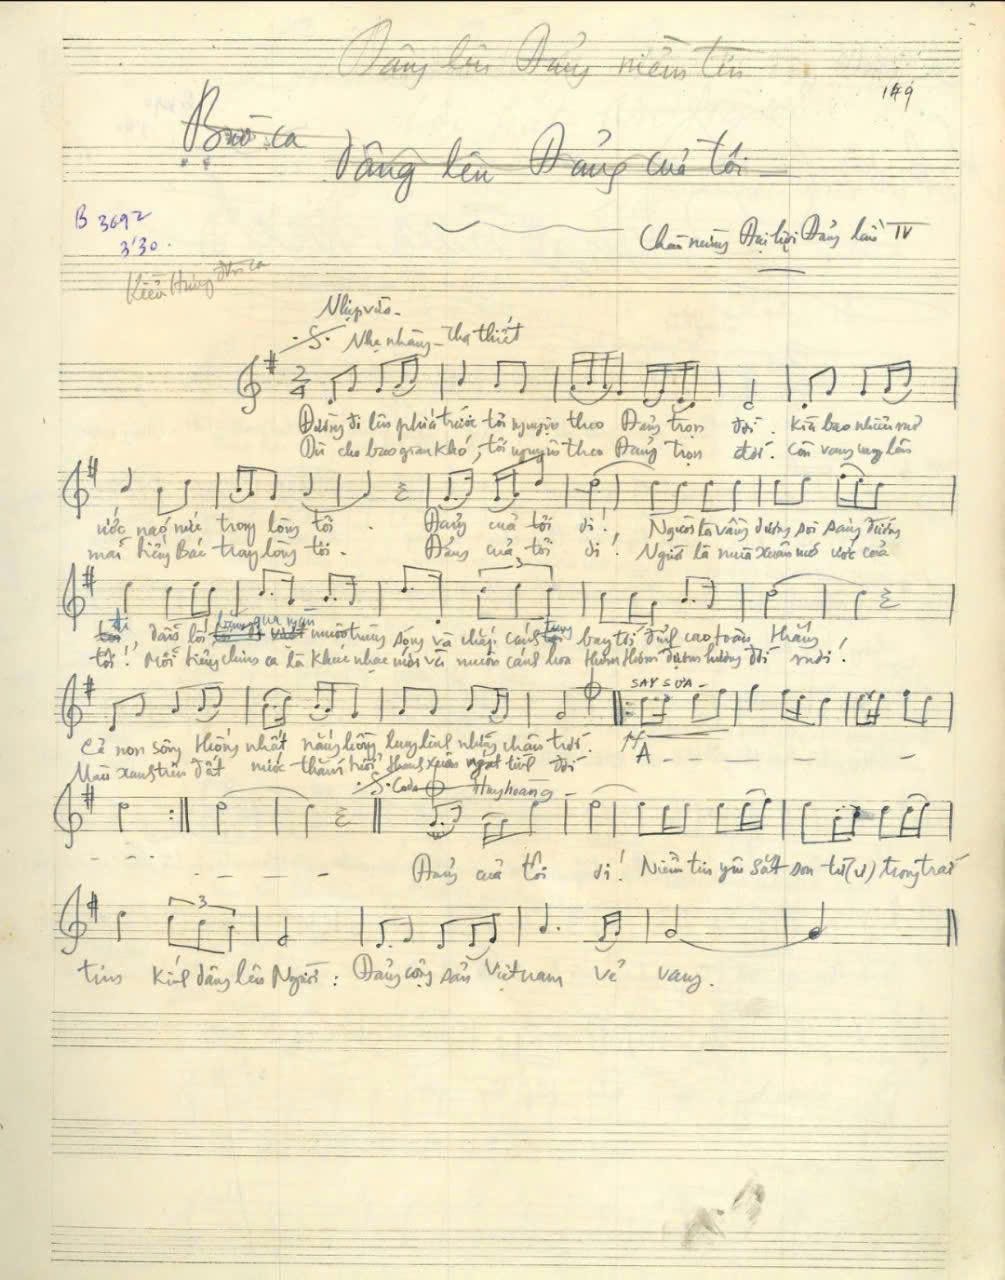 Dâng lên Đảng niềm tin
149
Bài ca
Dâng lên Đảng của tôi
B 3692
3'30
Chào mừng Đại hội Đảng lần IV
Kiều Hưng đơn ca
Nhịp vừa -
Nhẹ nhàng - Tha thiết
Đường đi lên phía trước tôi nguyện theo Đảng trọn đời. Kìa bao nhiêu mơ
Dù cho bao gian khó, tôi nguyện theo Đảng trọn đời. Còn vang vọng lên
ước nao nức trong lòng tôi. Đảng của tôi ơi! Người là vầng dương soi sáng đường
mãi tiếng Bác trong lòng tôi. Đảng của tôi ơi! Người là mùa xuân mơ ước của
đi
băng qua ngàn
tung
dẫn lối muôn trùng sóng và chắp cánh bay tới đỉnh cao toàn thắng
tôi! Mỗi tiếng chim ca là khúc nhạc mới và muôn cánh hoa thơm thơm đượm hương đời mới!
SAY SƯA -
Cả non sông thống nhất nắng hồng lung linh những chân trời.
Màu xanh trên đất nước thắm tươi thanh xuân ngát tình đời
A - - - -
Coda Huy hoàng -
Đảng của tôi ơi! Niềm tin yêu sắt son từ (ừ) trong trái
3
tim kính dâng lên Người: Đảng cộng sản Việt nam vẻ vang.